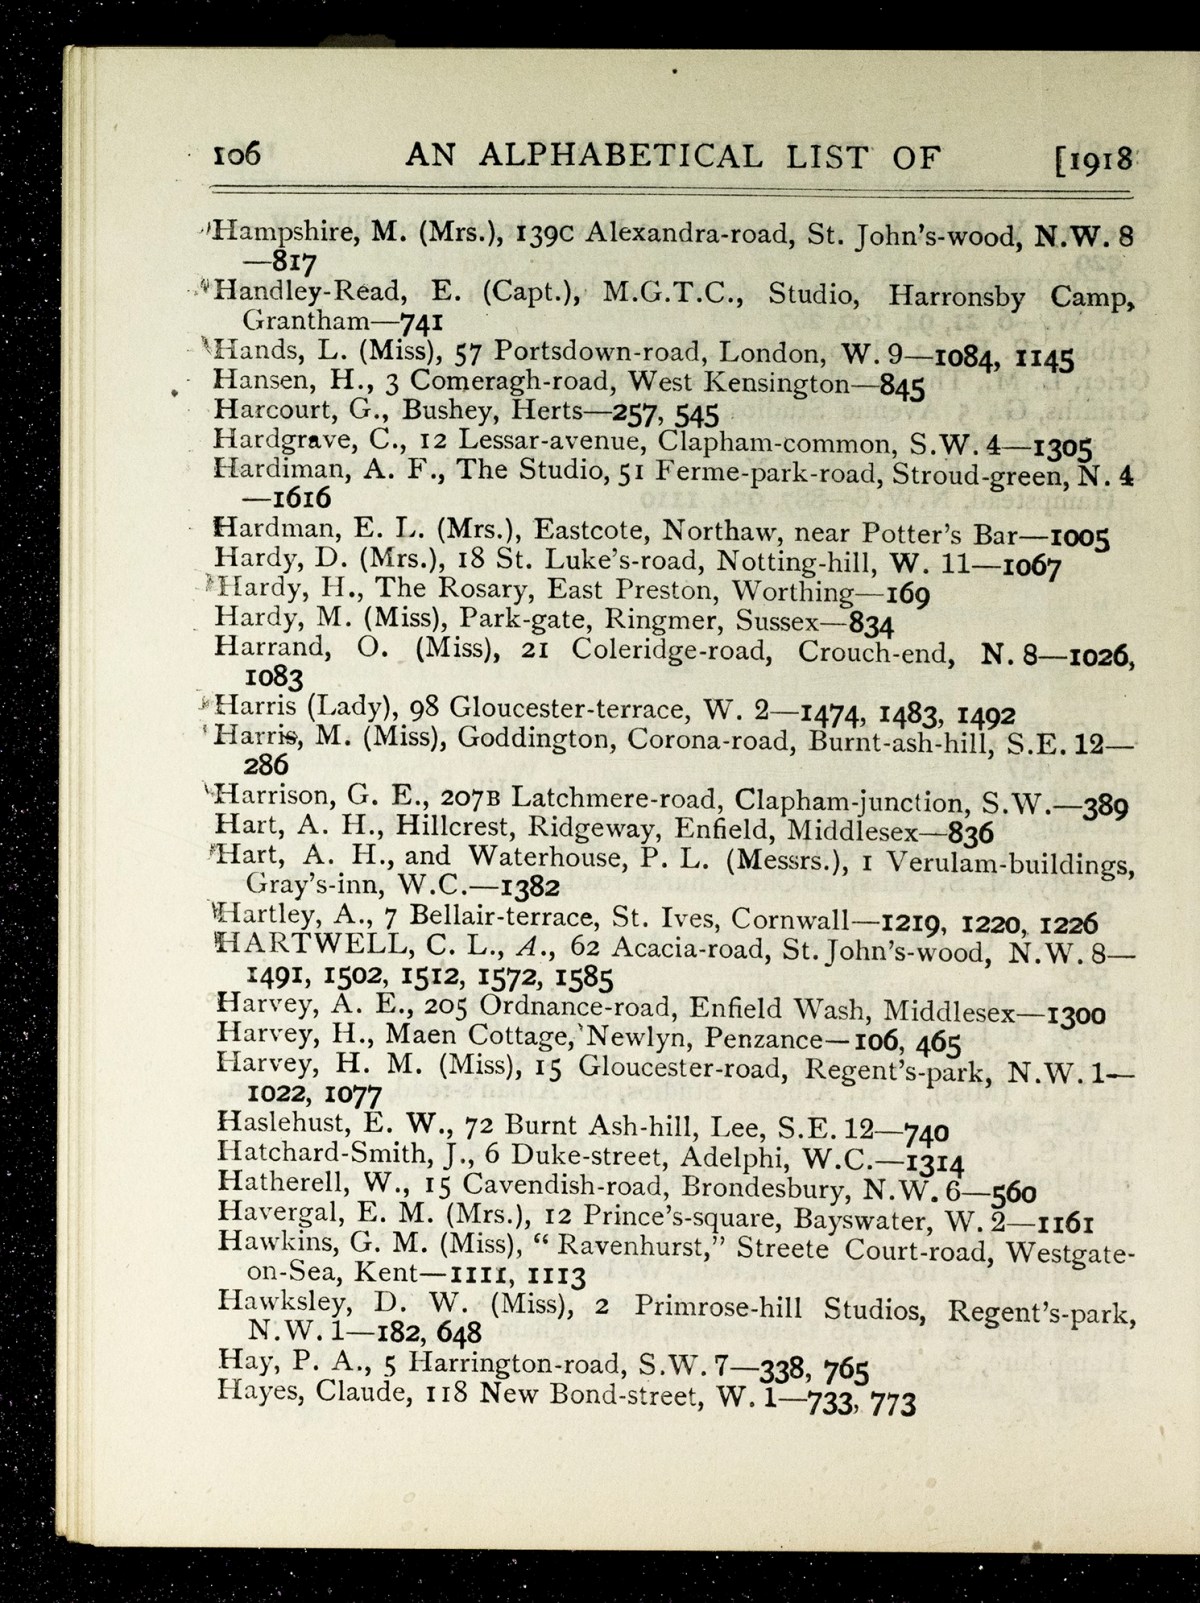 106 AN ALPHABETICAL LIST OF [1918
Hampshire, M. (Mrs.), 139C Alexandra-road, St. John's-wood, N.W. 8
—817
Handley-Read, E. (Capt.), M.G.T.C., Studio, Harronsby Camp,
Grantham—741
Hands, L. (Miss), 57 Portsdown-road, London, W. 9—1084, 1145
Hansen, H., 3 Comeragh-road, West Kensington—845
Harcourt, G., Bushey, Herts—257, 545
Hardgrave, C., 12 Lessar-avenue, Clapham-common, S.W. 4—1305
Hardiman, A. F., The Studio, 51 Ferme-park-road, Stroud-green, N. 4
—1616
Hardman, E. L. (Mrs.), Eastcote, Northaw, near Potter's Bar—1005
Hardy, D. (Mrs.), 18 St. Luke's-road, Notting-hill, W. 11—1067
Hardy, H., The Rosary, East Preston, Worthing—169
Hardy, M. (Miss), Park-gate, Ringmer, Sussex—834
Harrand, O. (Miss), 21 Coleridge-road, Crouch-end, N. 8—1026,
1083
Harris (Lady), 98 Gloucester-terrace, W. 2—1474, 1483, 1492
Harris, M. (Miss), Goddington, Corona-road, Burnt-ash-hill, S.E. 12—
286
Harrison, G. E., 207B Latchmere-road, Clapham-junction, S.W.—389
Hart, A. H., Hillcrest, Ridgeway, Enfield, Middlesex—836
Hart, A. H., and Waterhouse, P. L. (Messrs.), 1 Verulam-buildings,
Gray's-inn, W.C.—1382
Hartley, A., 7 Bellair-terrace, St. Ives, Cornwall—1219, 1220, 1226
HARTWELL, C. L., A., 62 Acacia-road, St. John's-wood, N.W. 8—
1491, 1502, 1512, 1572, 1585
Harvey, A. E., 205 Ordnance-road, Enfield Wash, Middlesex—1300
Harvey, H., Maen Cottage, Newlyn, Penzance—106, 465
Harvey, H. M. (Miss), 15 Gloucester-road, Regent's-park, N.W. 1—
1022, 1077
Haslehust, E. W., 72 Burnt Ash-hill, Lee, S.E. 12—740
Hatchard-Smith, J., 6 Duke-street, Adelphi, W.C.—1314
Hatherell, W., 15 Cavendish-road, Brondesbury, N.W. 6—560
Havergal, E. M. (Mrs.), 12 Prince's-square, Bayswater, W. 2—1161
Hawkins, G. M. (Miss), “ Ravenhurst,” Streete Court-road, Westgate-
on-Sea, Kent—1111, 1113
Hawksley, D. W. (Miss), 2 Primrose-hill Studios, Regent's-park,
N.W. 1—182, 648
Hay, P. A., 5 Harrington-road, S.W. 7—338, 765
Hayes, Claude, 118 New Bond-street, W. 1—733, 773